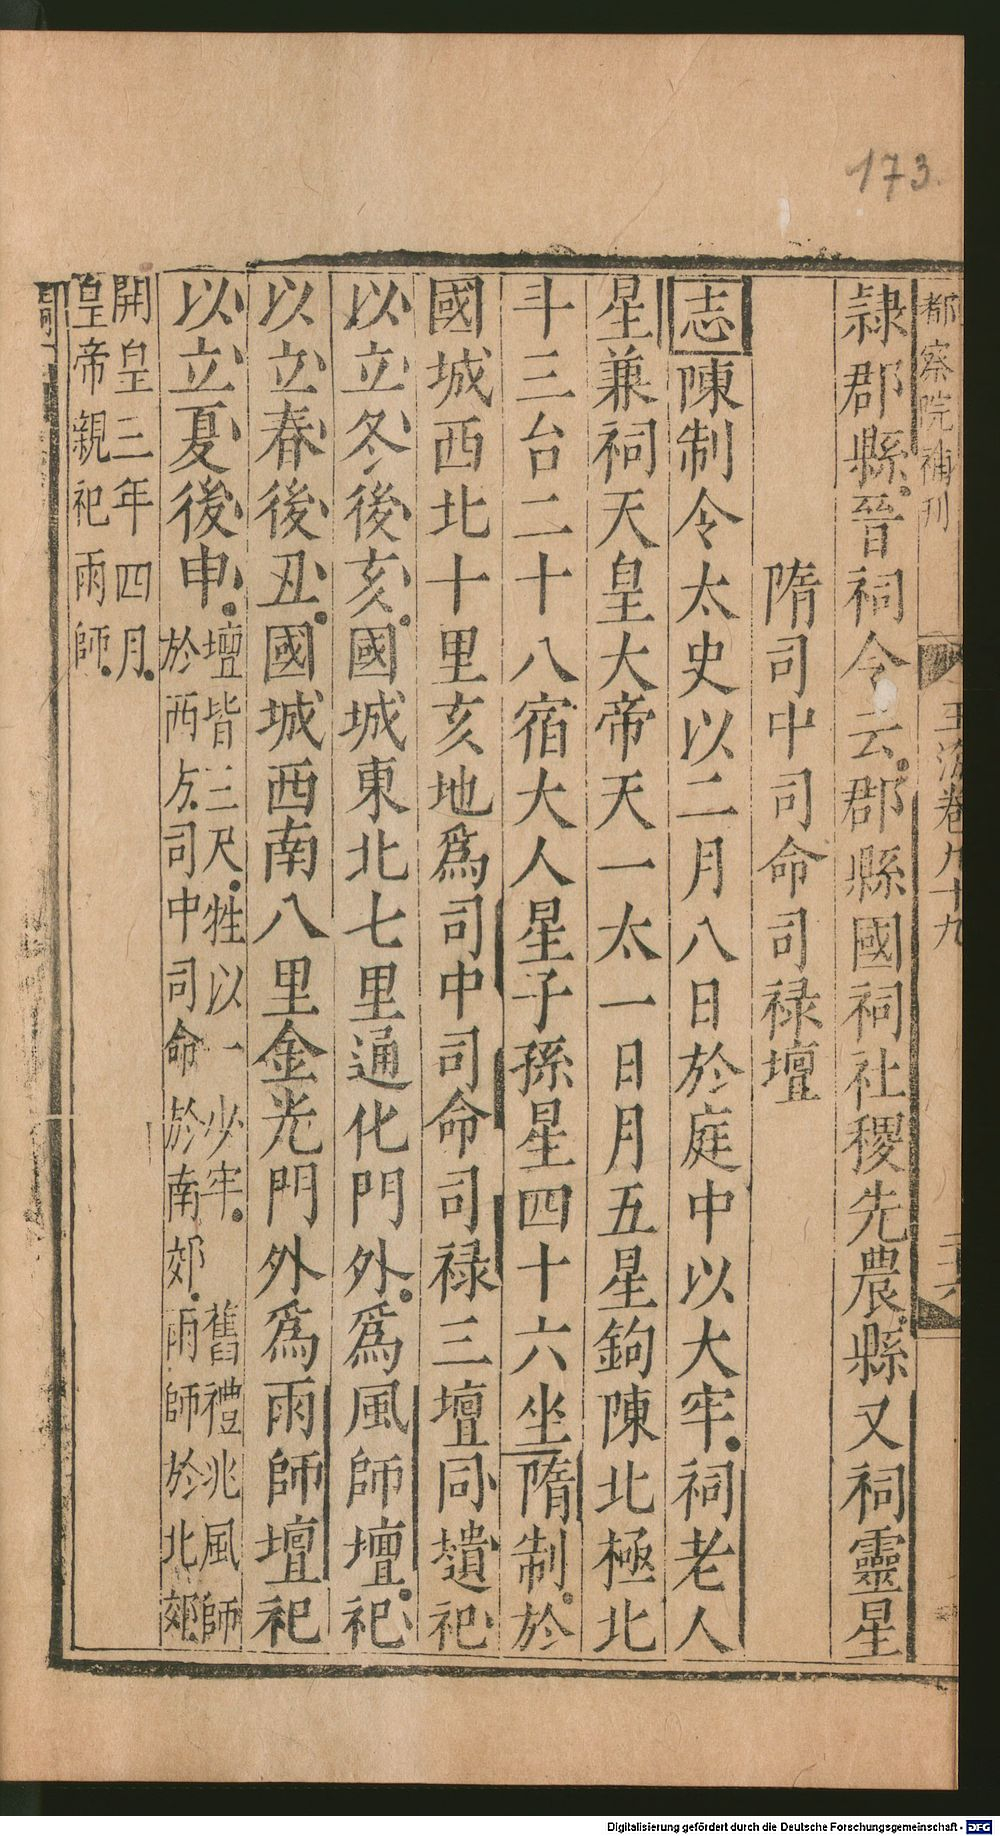 173.
都察院補刊
玉海卷九十九
二十六
隷郡縣。晉祠令云。郡縣國祠社稷先農。縣又祠靈星
隋司中司命司禄壇
志陳制令太史以二月八日於庭中以大牢。祠老人
星兼祠天皇大帝天一太一日月五星鉤陳北極北
斗三台二十八宿大人星子孫星四十六坐隋制。於
國城西北十里亥地爲司中司命司禄三壇同壝祀
以立冬後亥。國城東北七里通化門外。爲風師壇。祀
以立春後丑。國城西南八里金光門外爲雨師壇祀
以立夏後申。
壇皆三尺。牲以一少牢。舊禮兆風師
於西方。司中司命於南郊。雨師於北郊。
開皇三年四月。
皇帝親祀雨師。
Digitalisierung gefördert durch die Deutsche Forschungsgemeinschaft - DFG